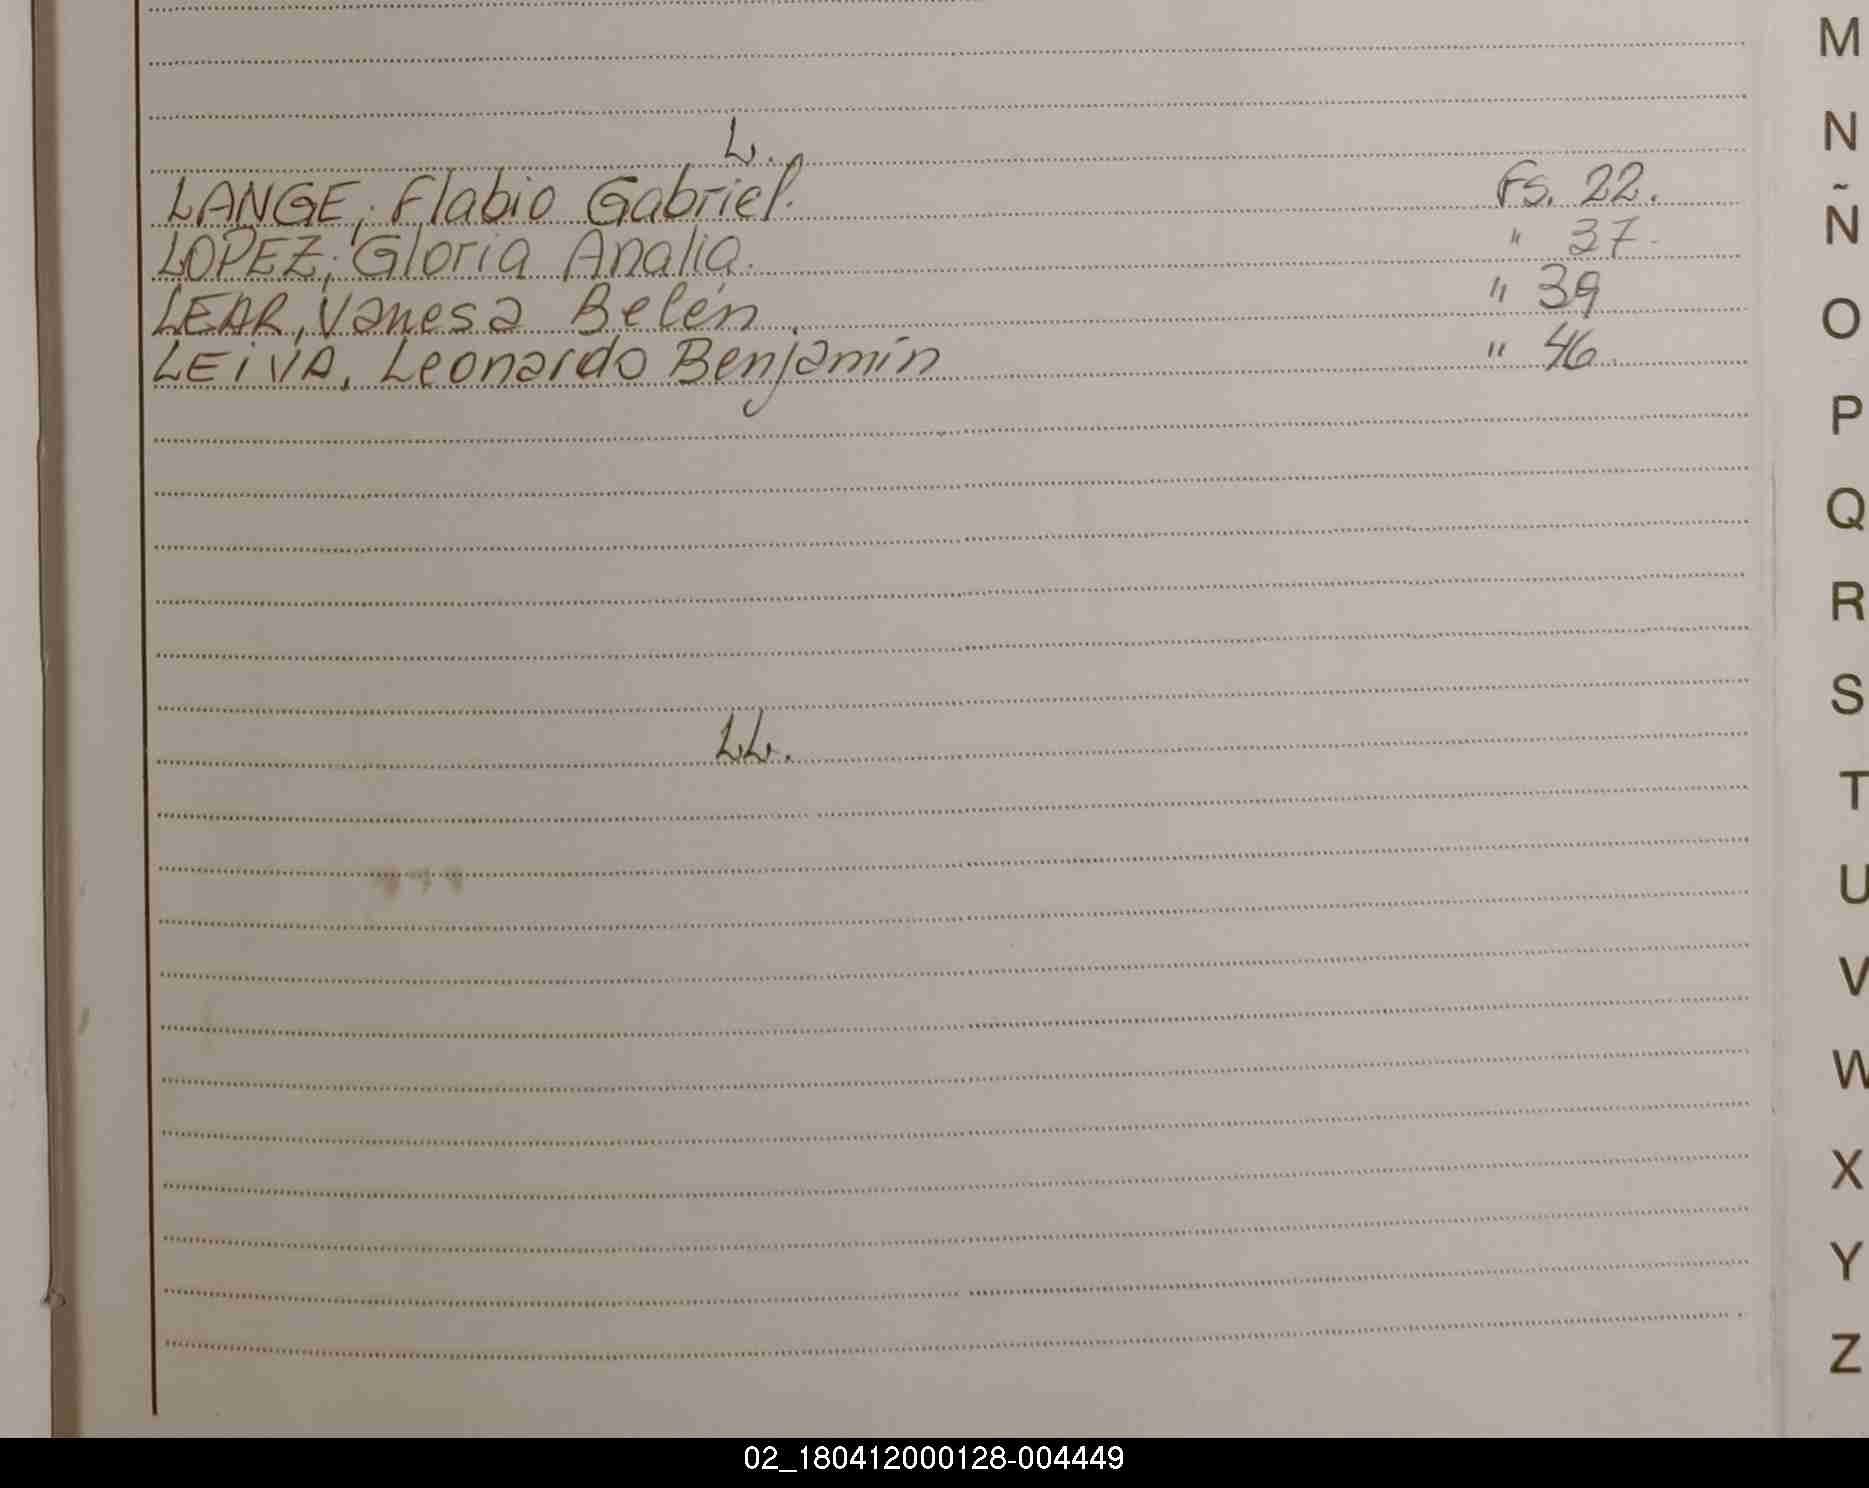 L.
LANGE, Flabio Gabriel. Fs. 22.
LOPEZ, Gloria Analia. " 37.
LEAR, Vanesa Belén. " 39
LEiVA, Leonardo Benjamín " 46.
LL.
M
N
Ñ
O
P
Q
R
S
T
U
V
W
X
Y
Z
02_180412000128-004449